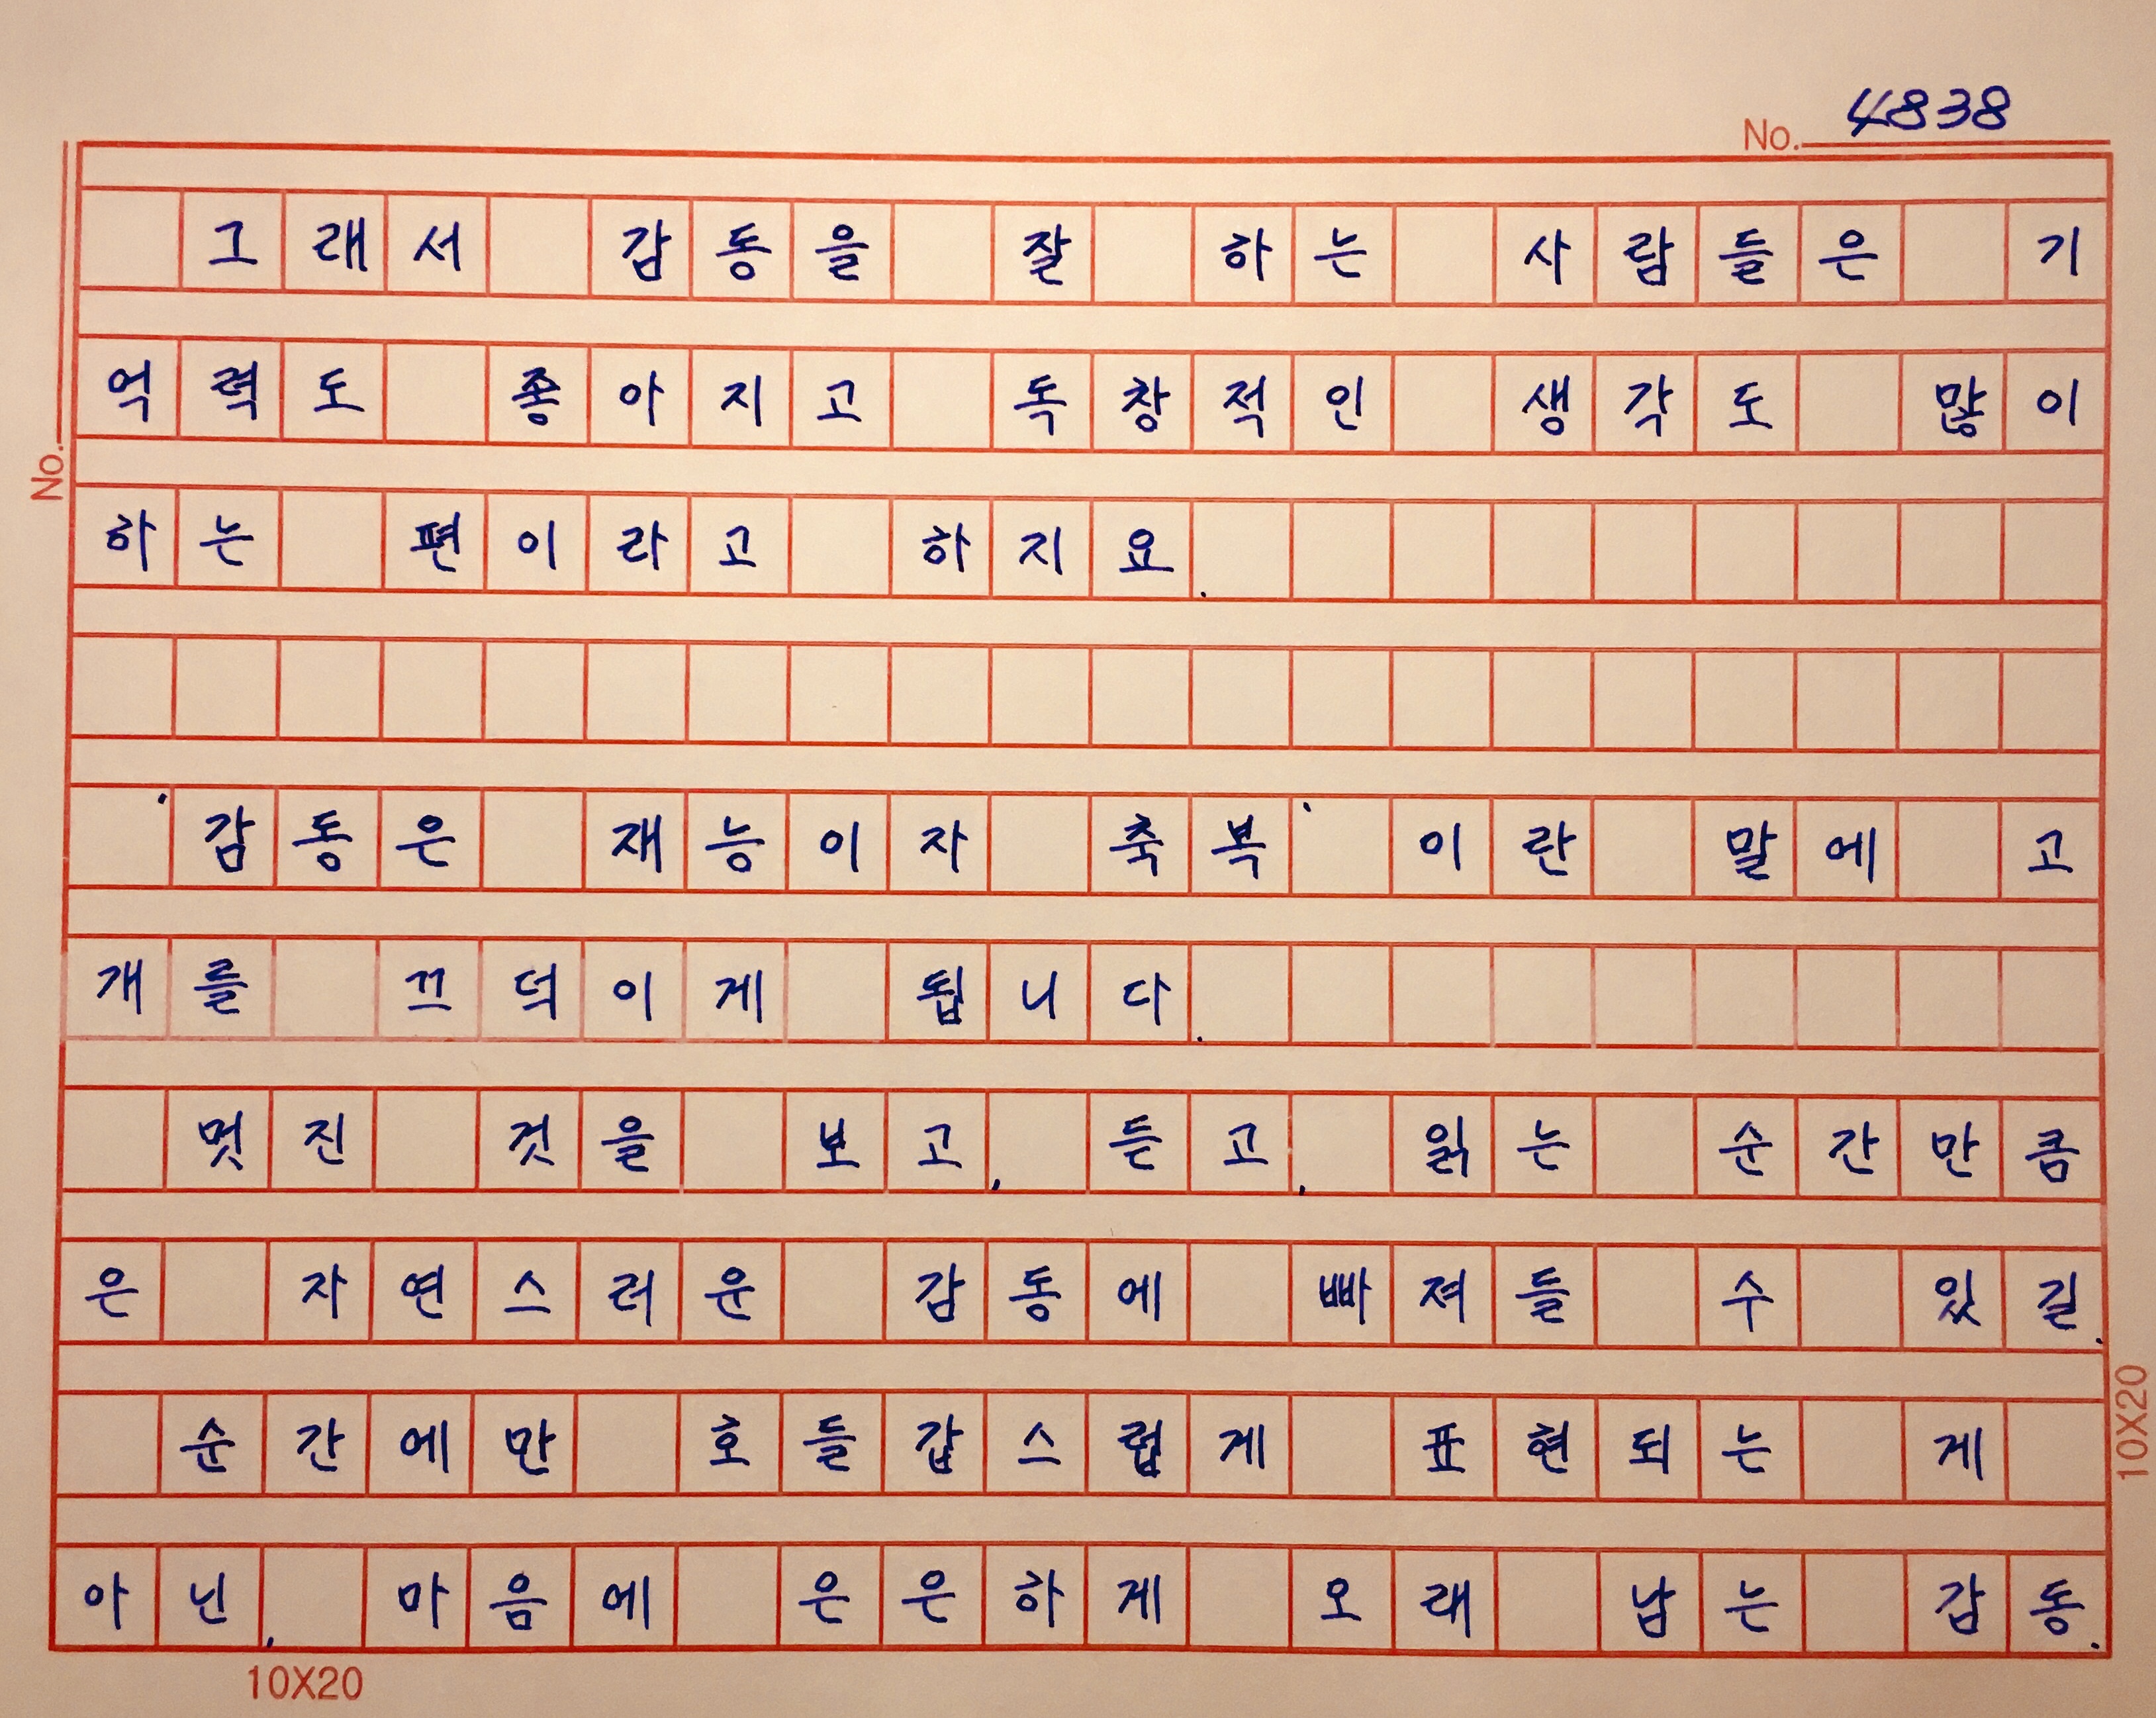 No. 4838
No.
그래서 감동을 잘 하는 사람들은 기
억력도 좋아지고 독창적인 생각도 많이
하는 편이라고 하지요.
'감동은 재능이자 축복'이란 말에 고
개를 끄덕이게 됩니다.
멋진 것을 보고, 듣고, 읽는 순간만큼
은 자연스러운 감동에 빠져들 수 있길.
순간에만 호들갑스럽게 표현되는 게
아닌, 마음에 은은하게 오래 남는 감동.
10X20
10X20